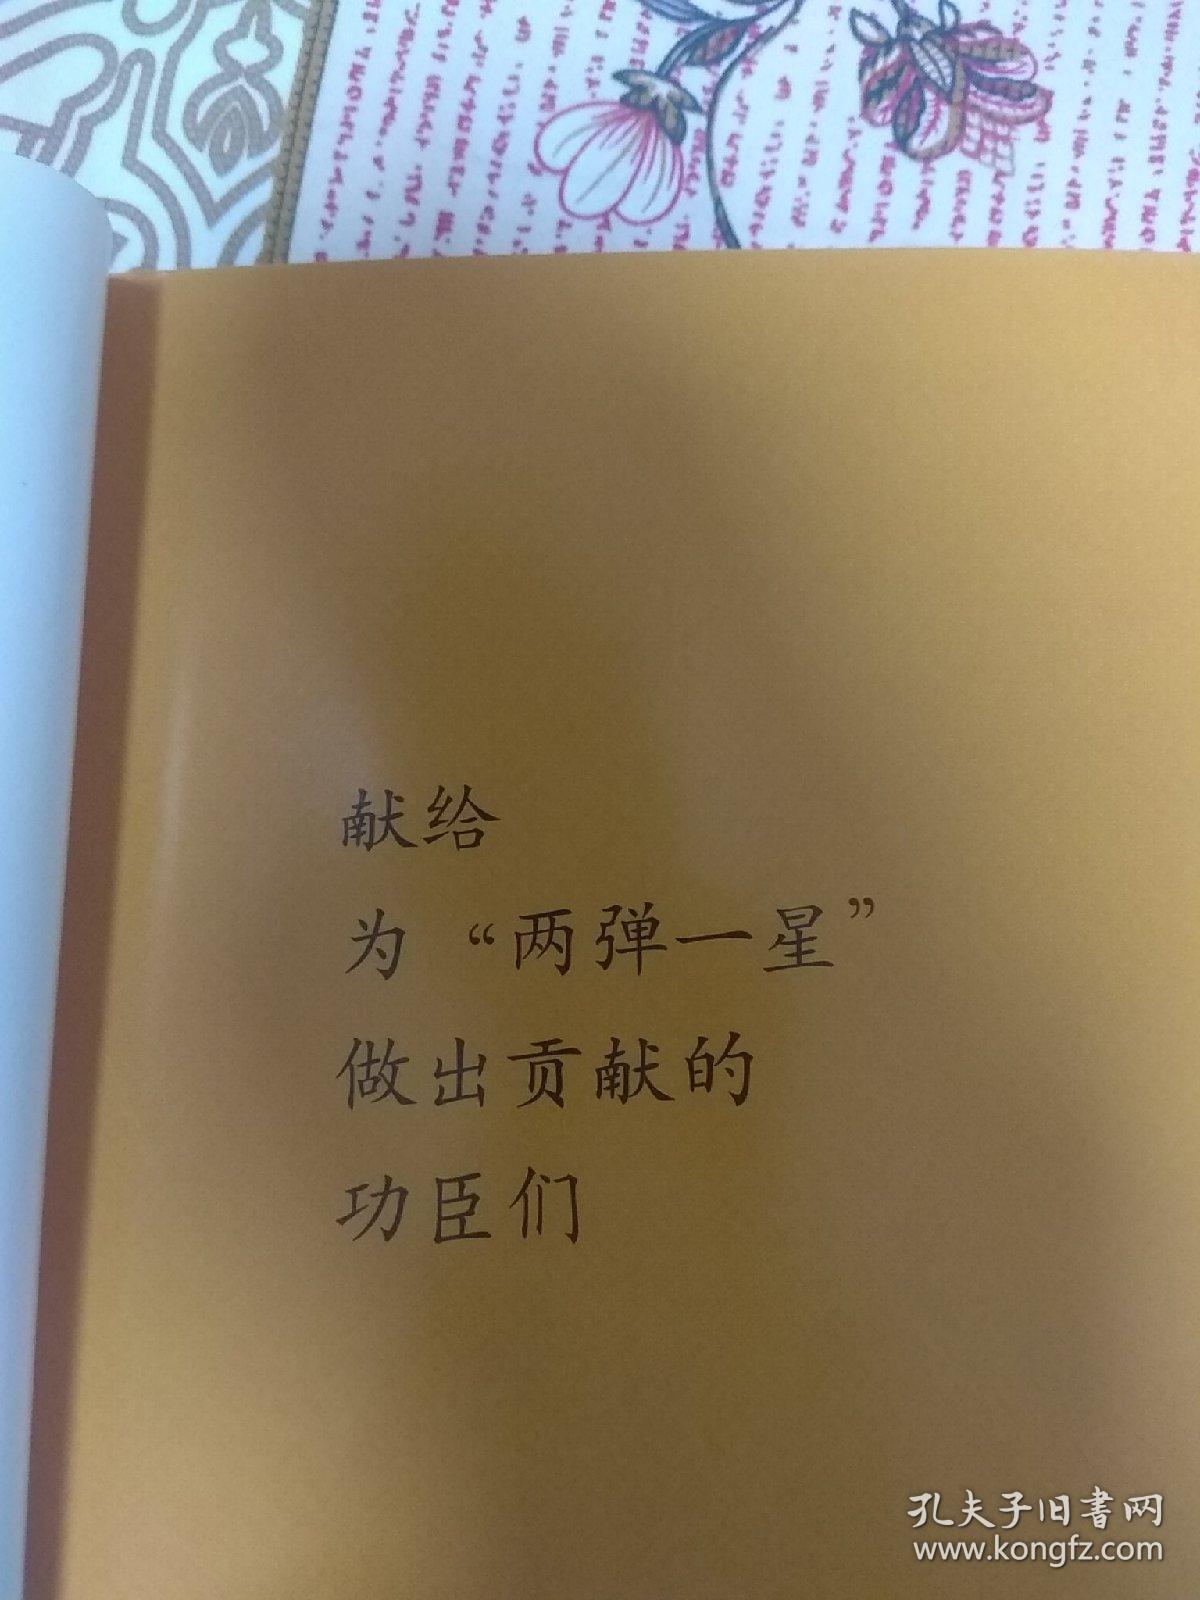 献给
为“两弹一星”
做出贡献的
功臣们
孔夫子旧书网
www.kongfz.com